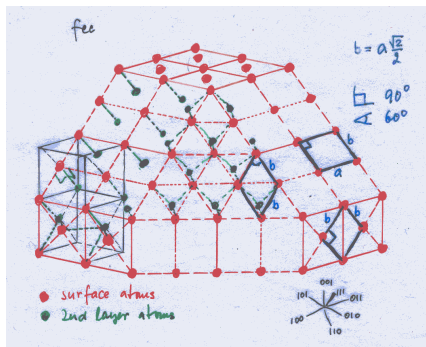 fcc
b = a √2/2
90°
60°
b
b
a
b
b
b
b
surface atoms
2nd layer atoms
001
101
111
011
100
010
110